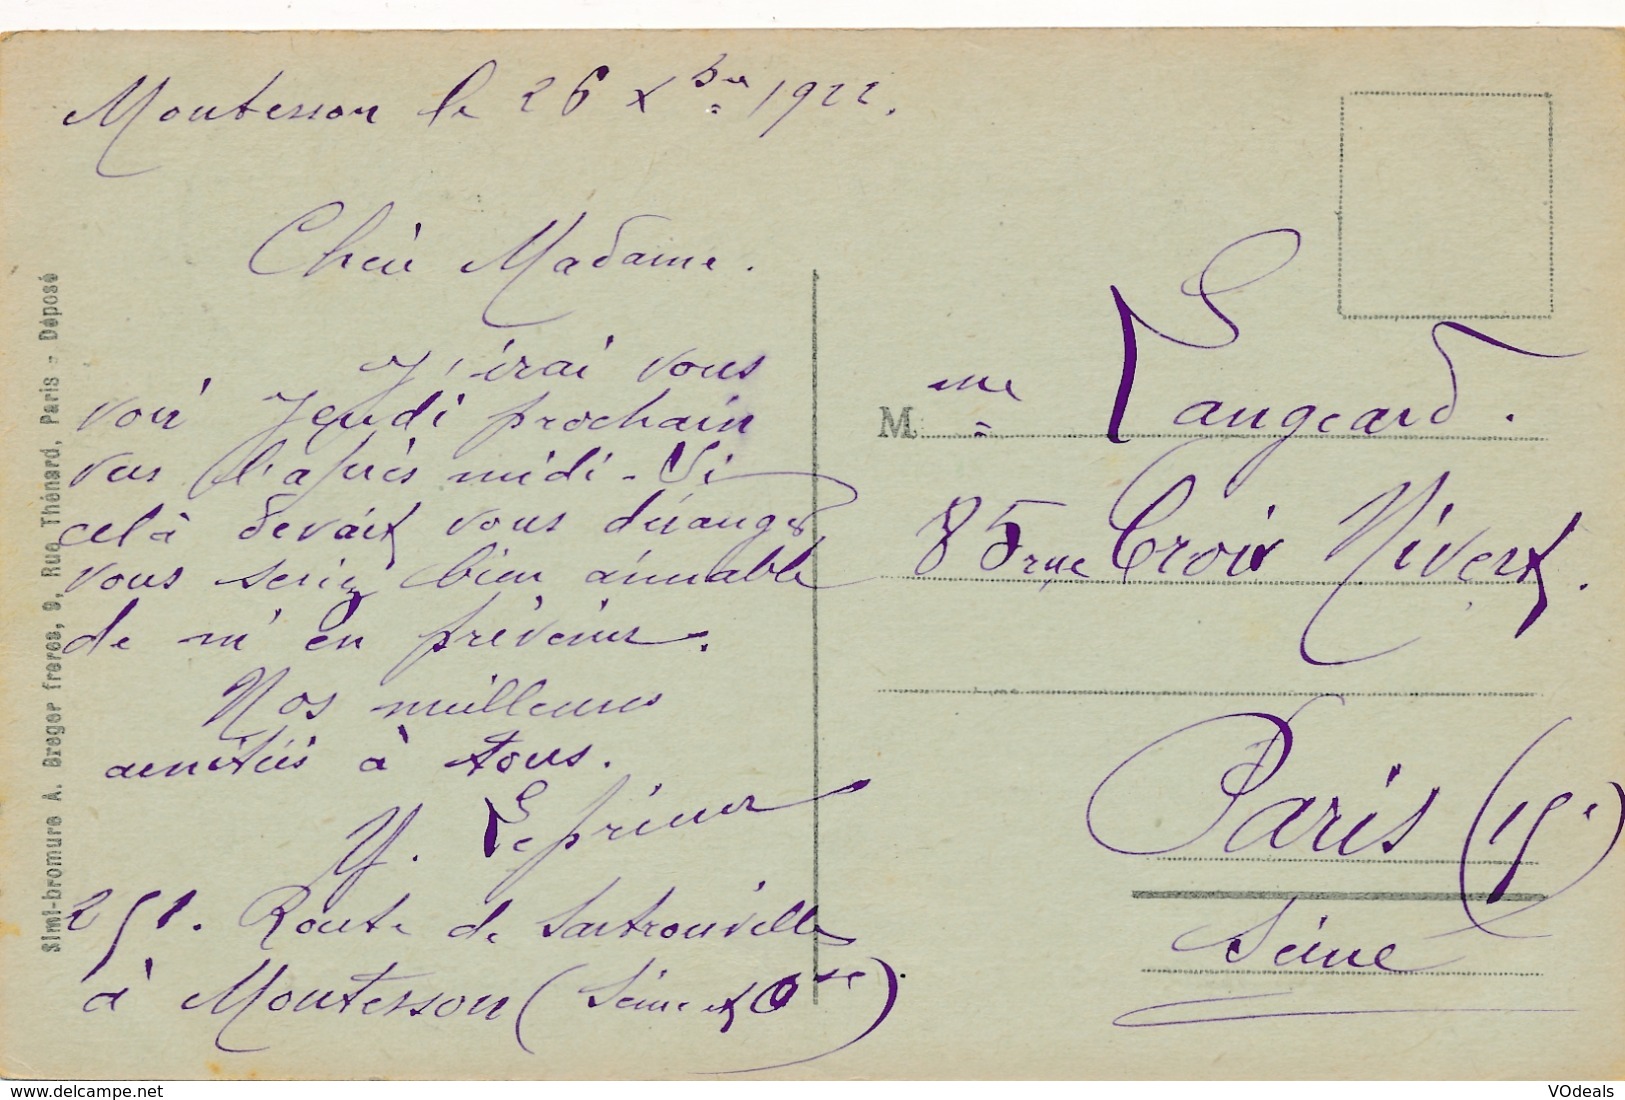 Montesson le 26 Xbre 1922.
Chère Madame.
J'irai vous
voir Jeudi prochain
vers l'après midi - Si
celà devait vous déranger
vous seriez bien aimable
de m'en prévenir.
Nos meilleures
amitiés à tous.
Y. Leprieur
251. Route de Sartrouville
à Montesson (Seine et Oise).
Simi-bromure A. Breger freres, 9, Rue Thénard, Paris - Déposé
Mme Langeard.
85 rue Croix Nivert.
Paris (15e)
Seine
VOdeals
https://www.delcampe.net/en_US/collectibles/store/VOdeals